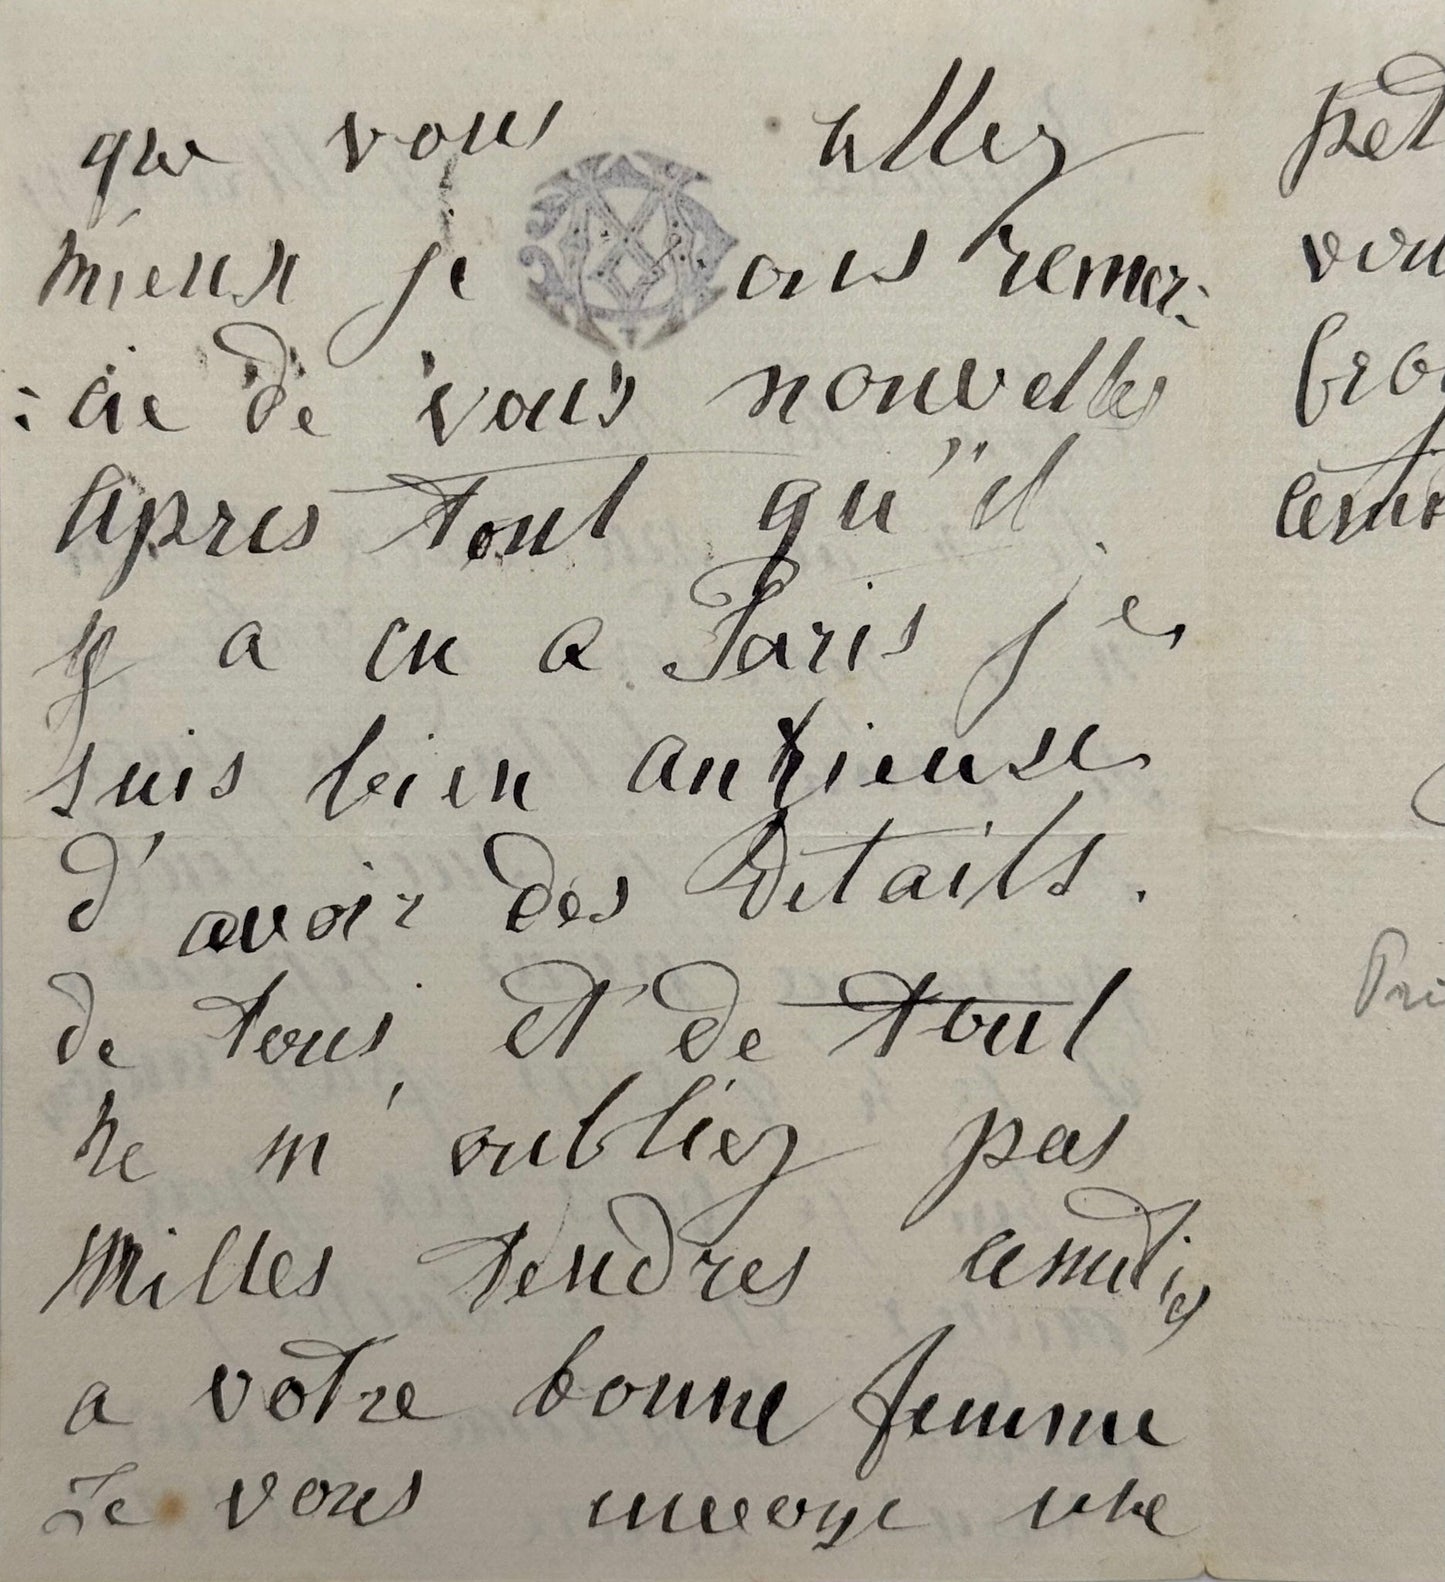 que vous allez
mieux je ous remer-
-cie de vous nouvelles
apres tout qu'il
y a eu a Paris je
suis bien anxieuse
d'avoir des details.
de tous et de tout
ne m'oubliez pas
Milles tendres amitiés
a votre bonne femme
Je vous envoye une
pet
vou
bro